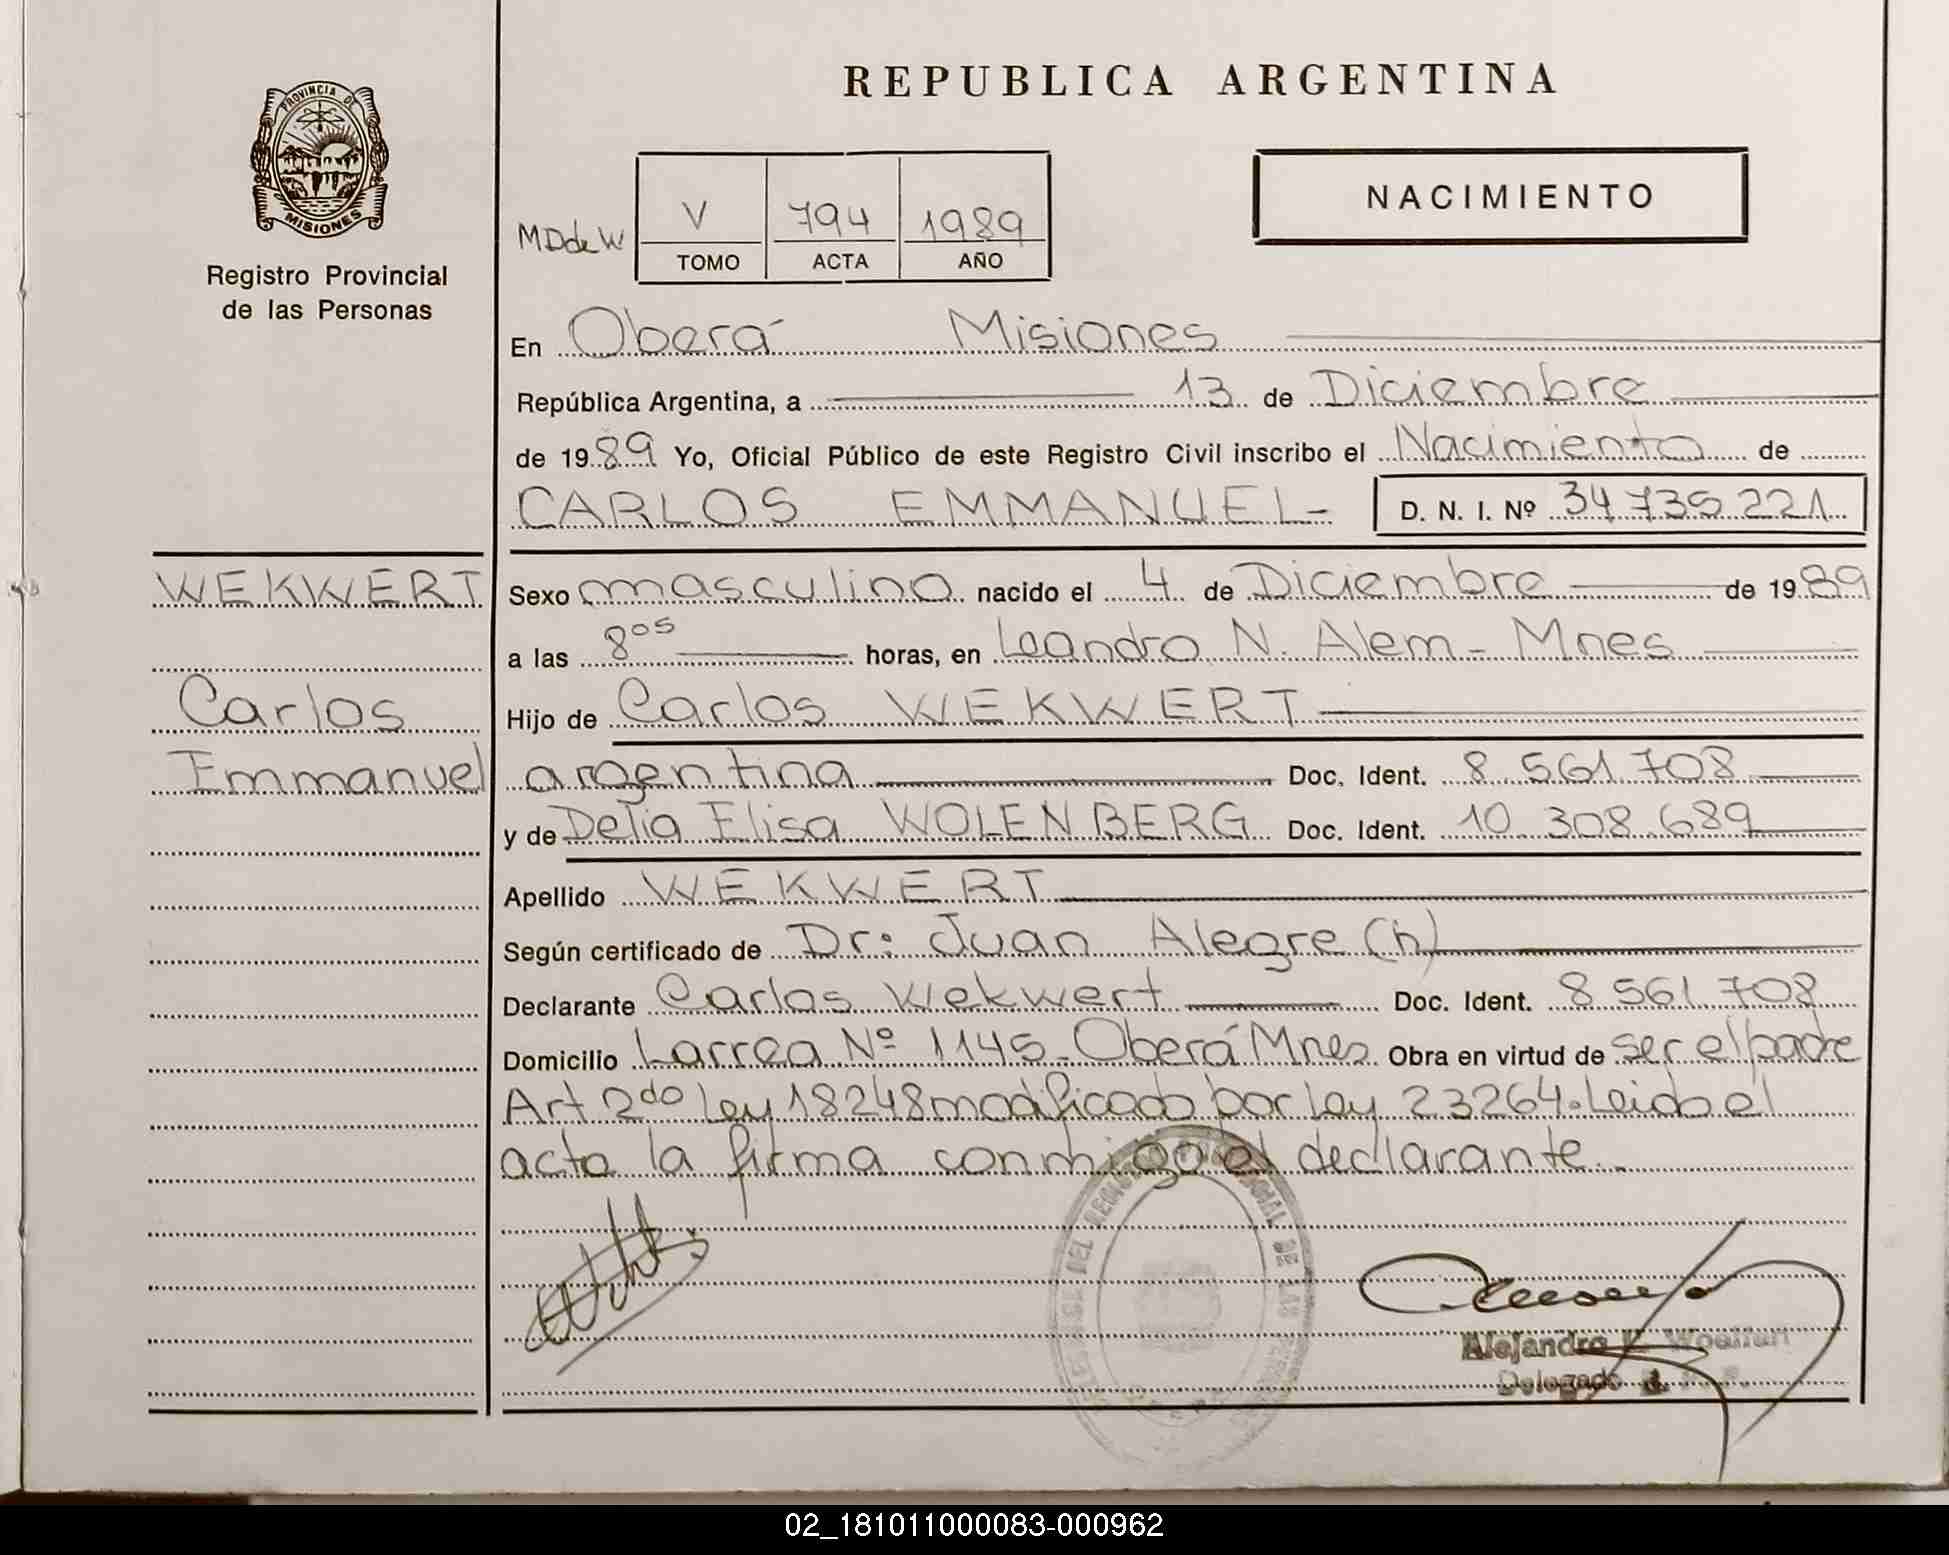 REPUBLICA ARGENTINA
PROVINCIA DE
MISIONES
Registro Provincial
de las Personas
NACIMIENTO
MD de W
V 794 1989
TOMO ACTA AÑO
En Oberá Misiones
República Argentina, a 13 de Diciembre
de 1989 Yo, Oficial Público de este Registro Civil inscribo el Nacimiento de
CARLOS EMMANUEL- D. N. I. Nº 34 735 221
WEKWERT
Carlos
Emmanuel
Sexo masculino nacido el 4 de Diciembre de 1989
a las 8⁰⁵ horas, en Leandro N. Alem - Mnes
Hijo de Carlos WEKWERT
argentina Doc. Ident. 8 561 708
y de Delia Elisa WOLENBERG Doc. Ident. 10 308 689
Apellido WEKWERT
Según certificado de Dr: Juan Alegre (h)
Declarante Carlos Wekwert Doc. Ident. 8 561 708
Domicilio Larrea Nº 1145 - Oberá Mnes Obra en virtud de ser el padre
Art 2do Ley 18248 modificado por Ley 23264. Leido el
acta la firma conmigo el declarante.
Alejandro
Delegado
02_181011000083-000962